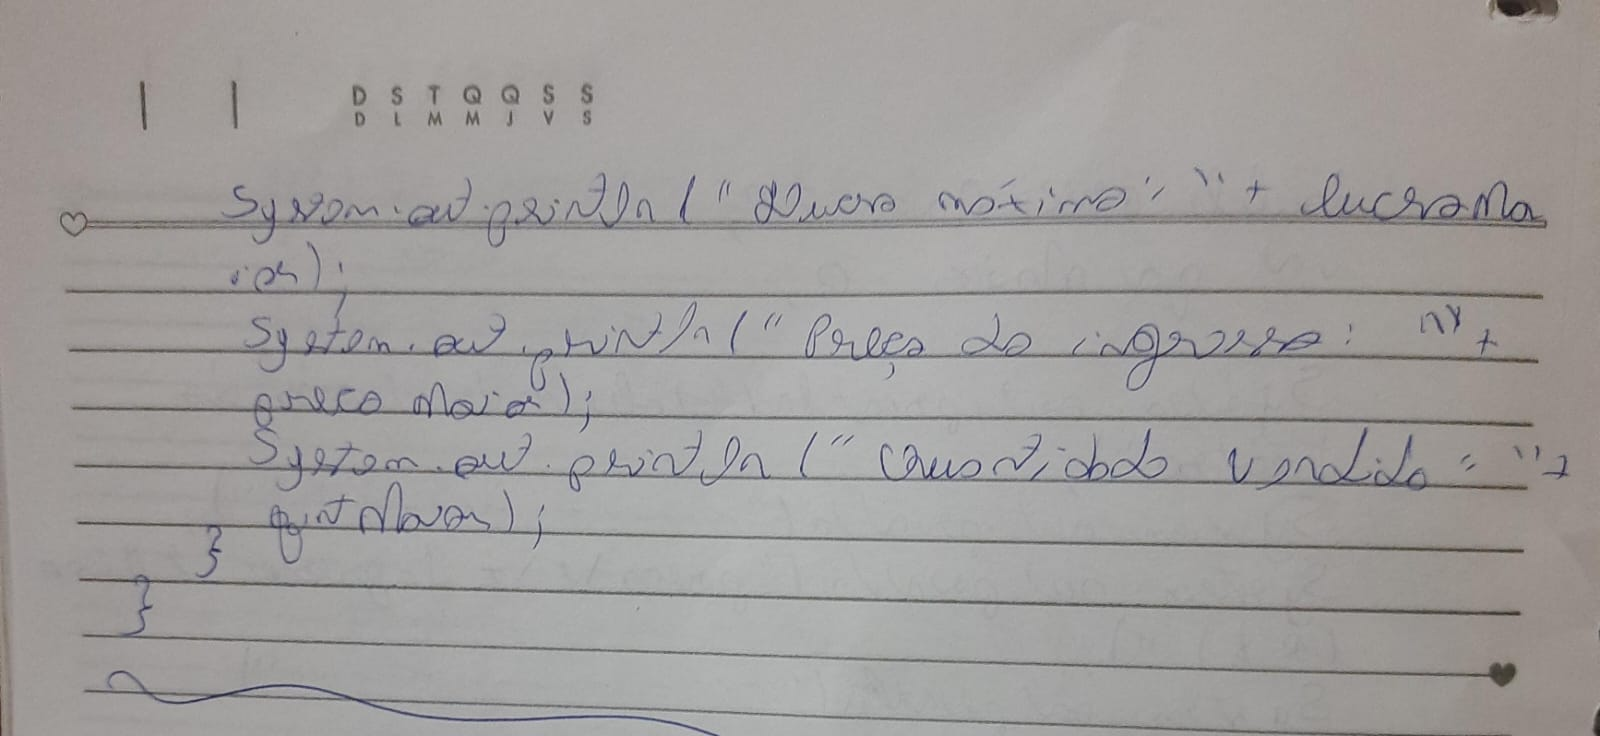 D S T Q Q S S
D L M M J V S
System.out.println("Lucro máximo: "+ lucroMa
ior);
System.out.println("Preço do ingresso: "+
precoMaior);
System.out.println("Quantidade vendida: "+
qntMaior);
}
}